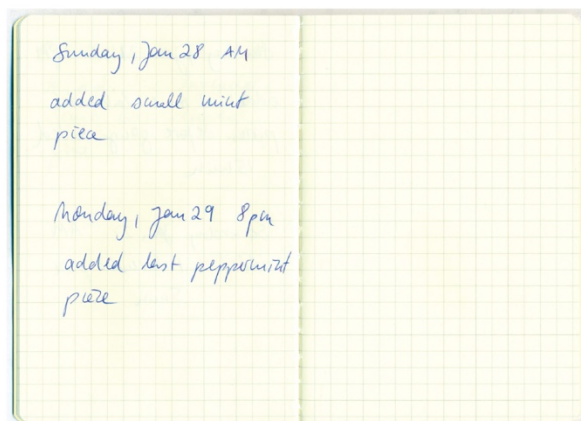 Sunday, Jan 28 AM
added small mint
piece
Monday, Jan 29 8pm
added last peppermint
piece